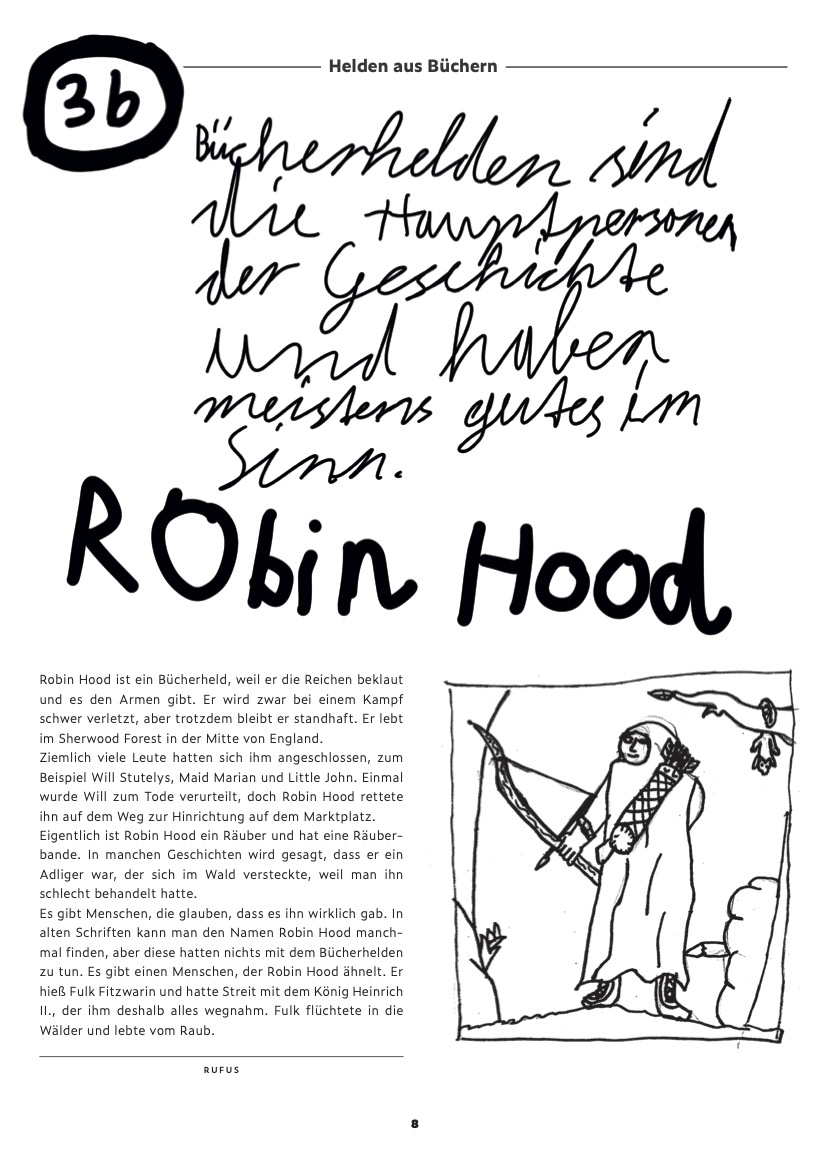 Helden aus Büchern
3b
Bücherhelden sind
die Hauptpersonen
der Geschichte
und haben
meistens gutes im
Sinn.
Robin Hood
Robin Hood ist ein Bücherheld, weil er die Reichen beklaut
und es den Armen gibt. Er wird zwar bei einem Kampf
schwer verletzt, aber trotzdem bleibt er standhaft. Er lebt
im Sherwood Forest in der Mitte von England.
Ziemlich viele Leute hatten sich ihm angeschlossen, zum
Beispiel Will Stutelys, Maid Marian und Little John. Einmal
wurde Will zum Tode verurteilt, doch Robin Hood rettete
ihn auf dem Weg zur Hinrichtung auf dem Marktplatz.
Eigentlich ist Robin Hood ein Räuber und hat eine Räuber-
bande. In manchen Geschichten wird gesagt, dass er ein
Adliger war, der sich im Wald versteckte, weil man ihn
schlecht behandelt hatte.
Es gibt Menschen, die glauben, dass es ihn wirklich gab. In
alten Schriften kann man den Namen Robin Hood manch-
mal finden, aber diese hatten nichts mit dem Bücherhelden
zu tun. Es gibt einen Menschen, der Robin Hood ähnelt. Er
hieß Fulk Fitzwarin und hatte Streit mit dem König Heinrich
II., der ihm deshalb alles wegnahm. Fulk flüchtete in die
Wälder und lebte vom Raub.
RUFUS
8